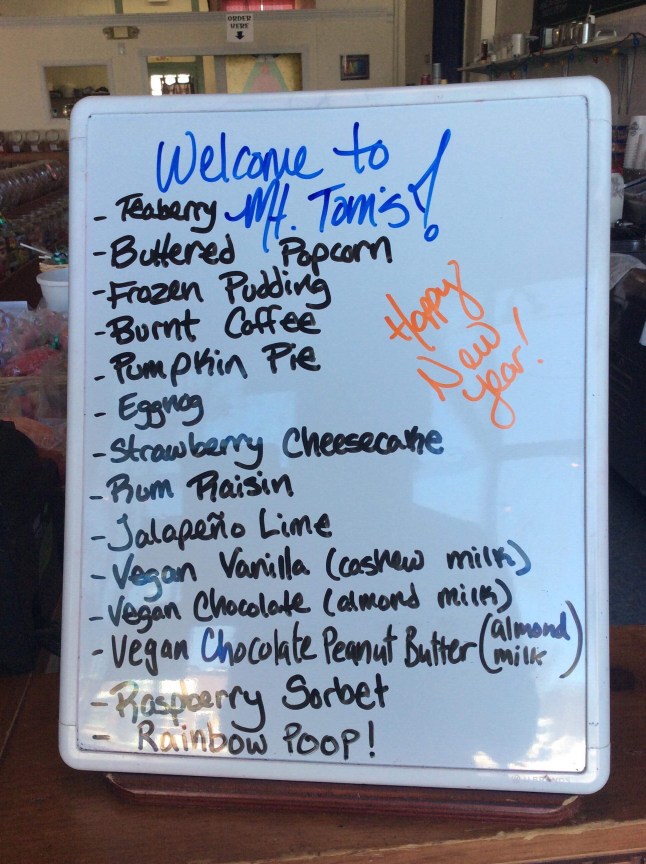 ORDER
HERE
Welcome to
Mt. Tom's!
- Teaberry
- Buttered Popcorn
- Frozen Pudding
- Burnt Coffee
- Pumpkin Pie
- Eggnog
- Strawberry Cheesecake
- Rum Raisin
- Jalapeño Lime
- Vegan Vanilla (cashew milk)
- Vegan Chocolate (almond milk)
- Vegan Chocolate Peanut Butter (almond milk)
- Raspberry Sorbet
- Rainbow Poop!
Happy
New
Year!